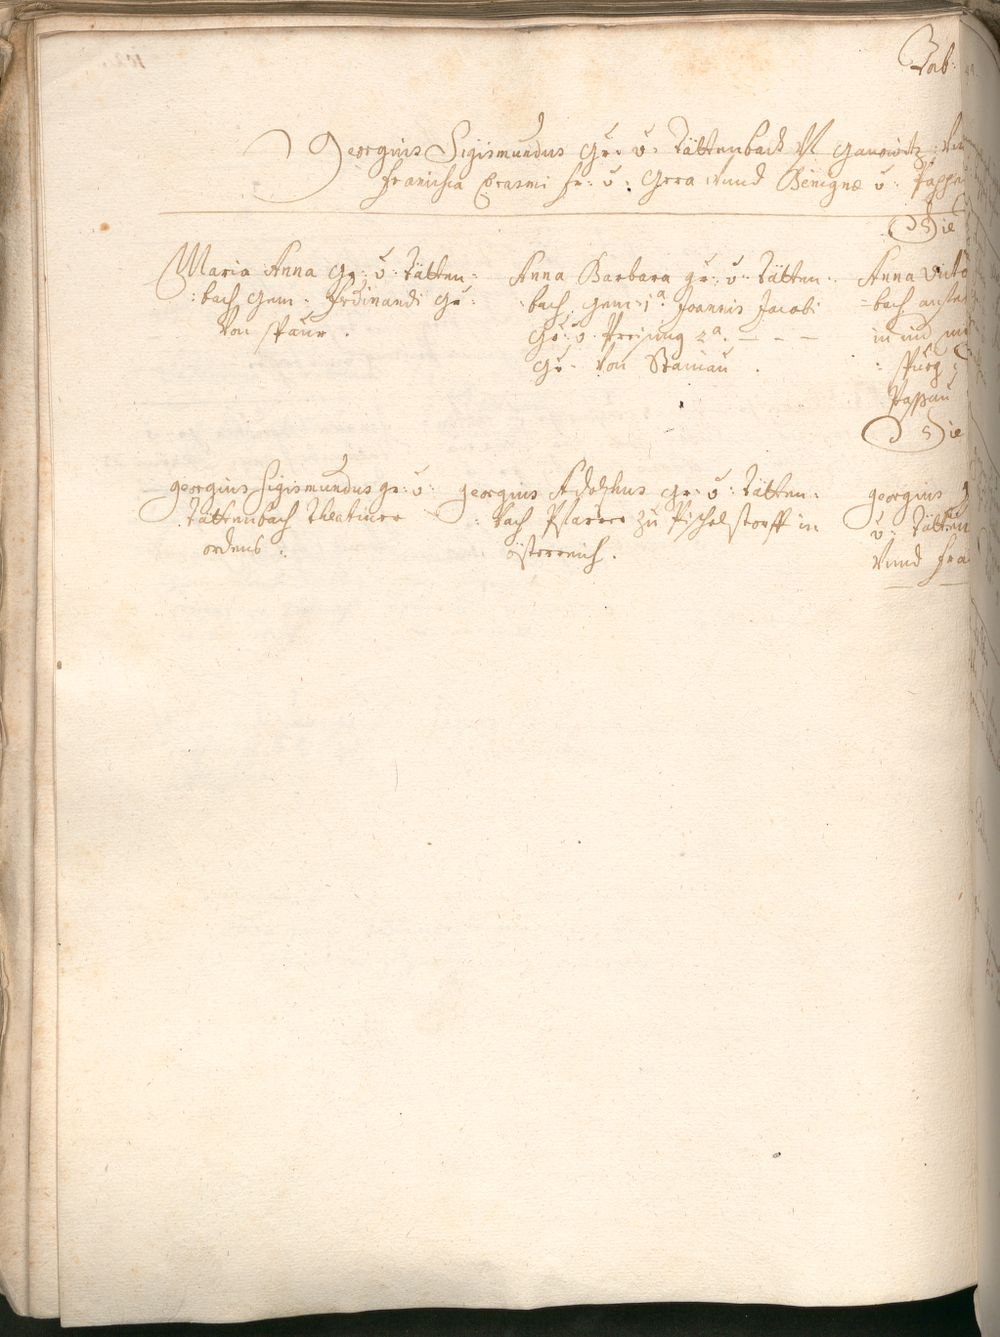 Tab:
Georgius Sigismundus Gr: v: Tättenbach Vf Ganowitz
Francisca Erasmi Fr: v: Gera vnnd Benignæ v: Pappe
Die
Maria Anna Gr: v: Tätten:
:bach Gem: Ferdinandi Gr:
von Spaur.
Anna Barbara Gr: v: Tätten:
:bach, Gem: 1ª Joannis Jacobi
Gr: v. Preising 2ª. — — —
Gr: von
Anna
=bach
in
Passau
Die
Georgius Sigismundus Gr: v:
Tättenbach Theatiner
ordens.
Georgius Adolphus Gr: v: Tätten:
:bach Pfarrer zu Pischelstorff in
österreich.
Georgius
v: Tätten
vnnd Fra